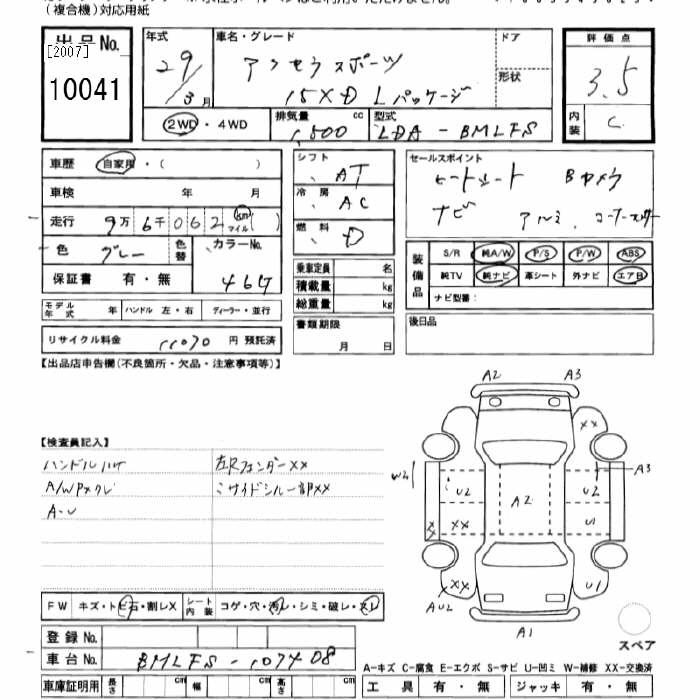 (複合機)対応用紙
出品No.
[2007]
10041
年式
29/3月
車名・グレード
アクセラスポーツ
15XD Lパッケージ
ドア
形状
②WD・4WD
排気量 cc
1,500
型式
LDA-BMLFS
評価点
3.5
内装
C
車歴 自家用・( )
車検 年 月
走行 9万6千062 km マイル ( )
色 グレー 色替 カラーNo.
46G
保証書 有・無
モデル年式 年 ハンドル 左・右 ディーラー・並行
リサイクル料金 11070 円 預託済
シフト AT
冷房 AC
燃料 D
乗車定員 名
積載量 kg
総重量 kg
書類期限
月 日
セールスポイント
ヒートシート Bカメラ
ナビ アルミ コーナーセンサー
装備品
S/R 純A/W P/S P/W ABS
純TV 純ナビ 革シート 外ナビ エアB
ナビ型番:
後日品
【出品店申告欄(不良箇所・欠品・注意事項等)】
【検査員記入】
ハンドルハゲ 左Rフェンダーxx
A/W 〃サイドシル一部xx
A-U
A2 A3
XX
W2 A3
U2 A2 U2
XX U1
XX
AU2 U1
A1
スペア
FW キズ・トビ石・割レX シート内装 コゲ・穴・汚レ・シミ・破レ・スレ
登録No.
車台No. BMLFS-107408
車庫証明用 長さ cm 幅 cm 高さ cm
A-キズ C-腐食 E-エクボ S-サビ U-凹ミ W-補修 XX-交換済
工具 有・無 ジャッキ 有・無